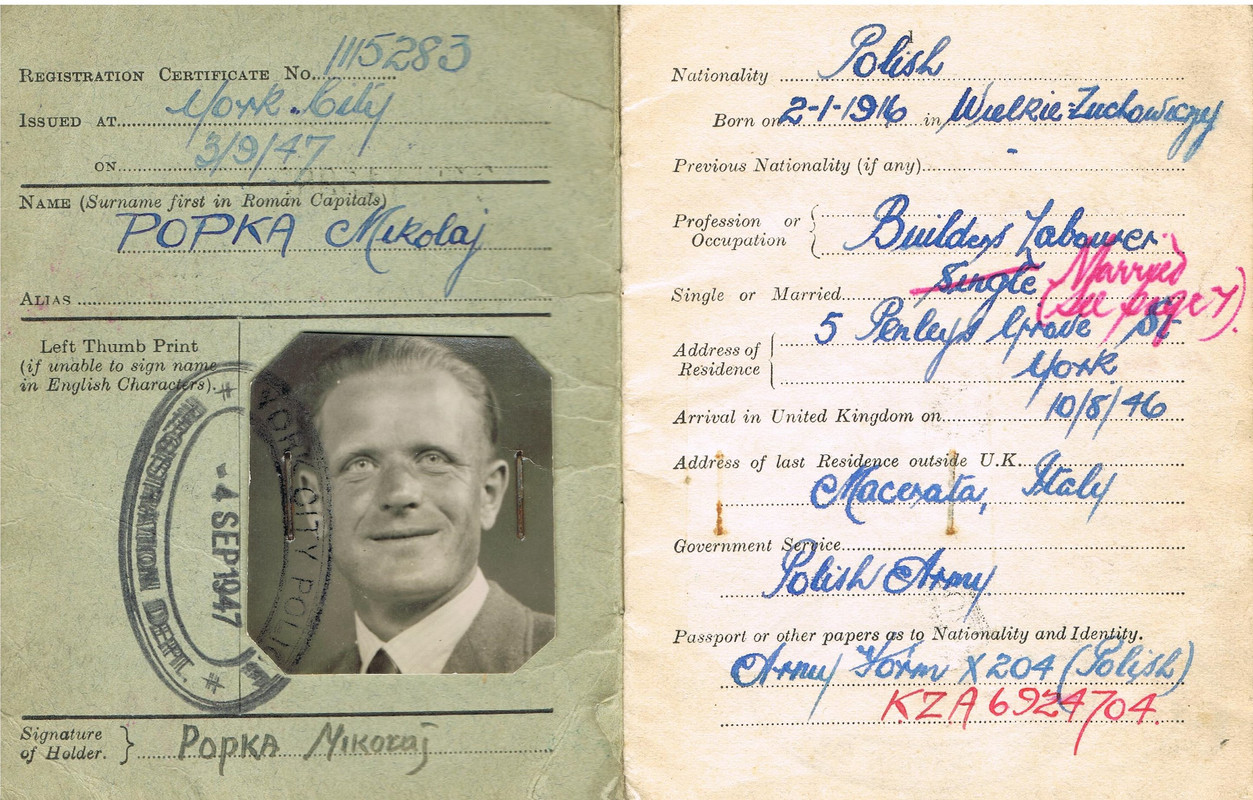 REGISTRATION CERTIFICATE No. 1115283
ISSUED AT York City
ON 3/9/47
NAME (Surname first in Roman Capitals)
POPKA Mikolaj
ALIAS
Left Thumb Print
(if unable to sign name
in English Characters).
REGISTRATION DEPT.
- 4 SEP 1947
YORK CITY POLICE
Signature
of Holder. } POPKA MIKOŁAJ
1
Nationality Polish
Born on 2-1-1916 in Wielkie-Zuchowiczy
Previous Nationality (if any) -
Profession or
Occupation { Builders Labourer.
Single or Married Single Married
(see page 7).
Address of
Residence { 5 Penleys Grove St
York
Arrival in United Kingdom on 10/8/46
Address of last Residence outside U.K.
Macerata, Italy
Government Service
Polish Army
Passport or other papers as to Nationality and Identity.
Army Form X 204 (Polish)
KZA 6924704.